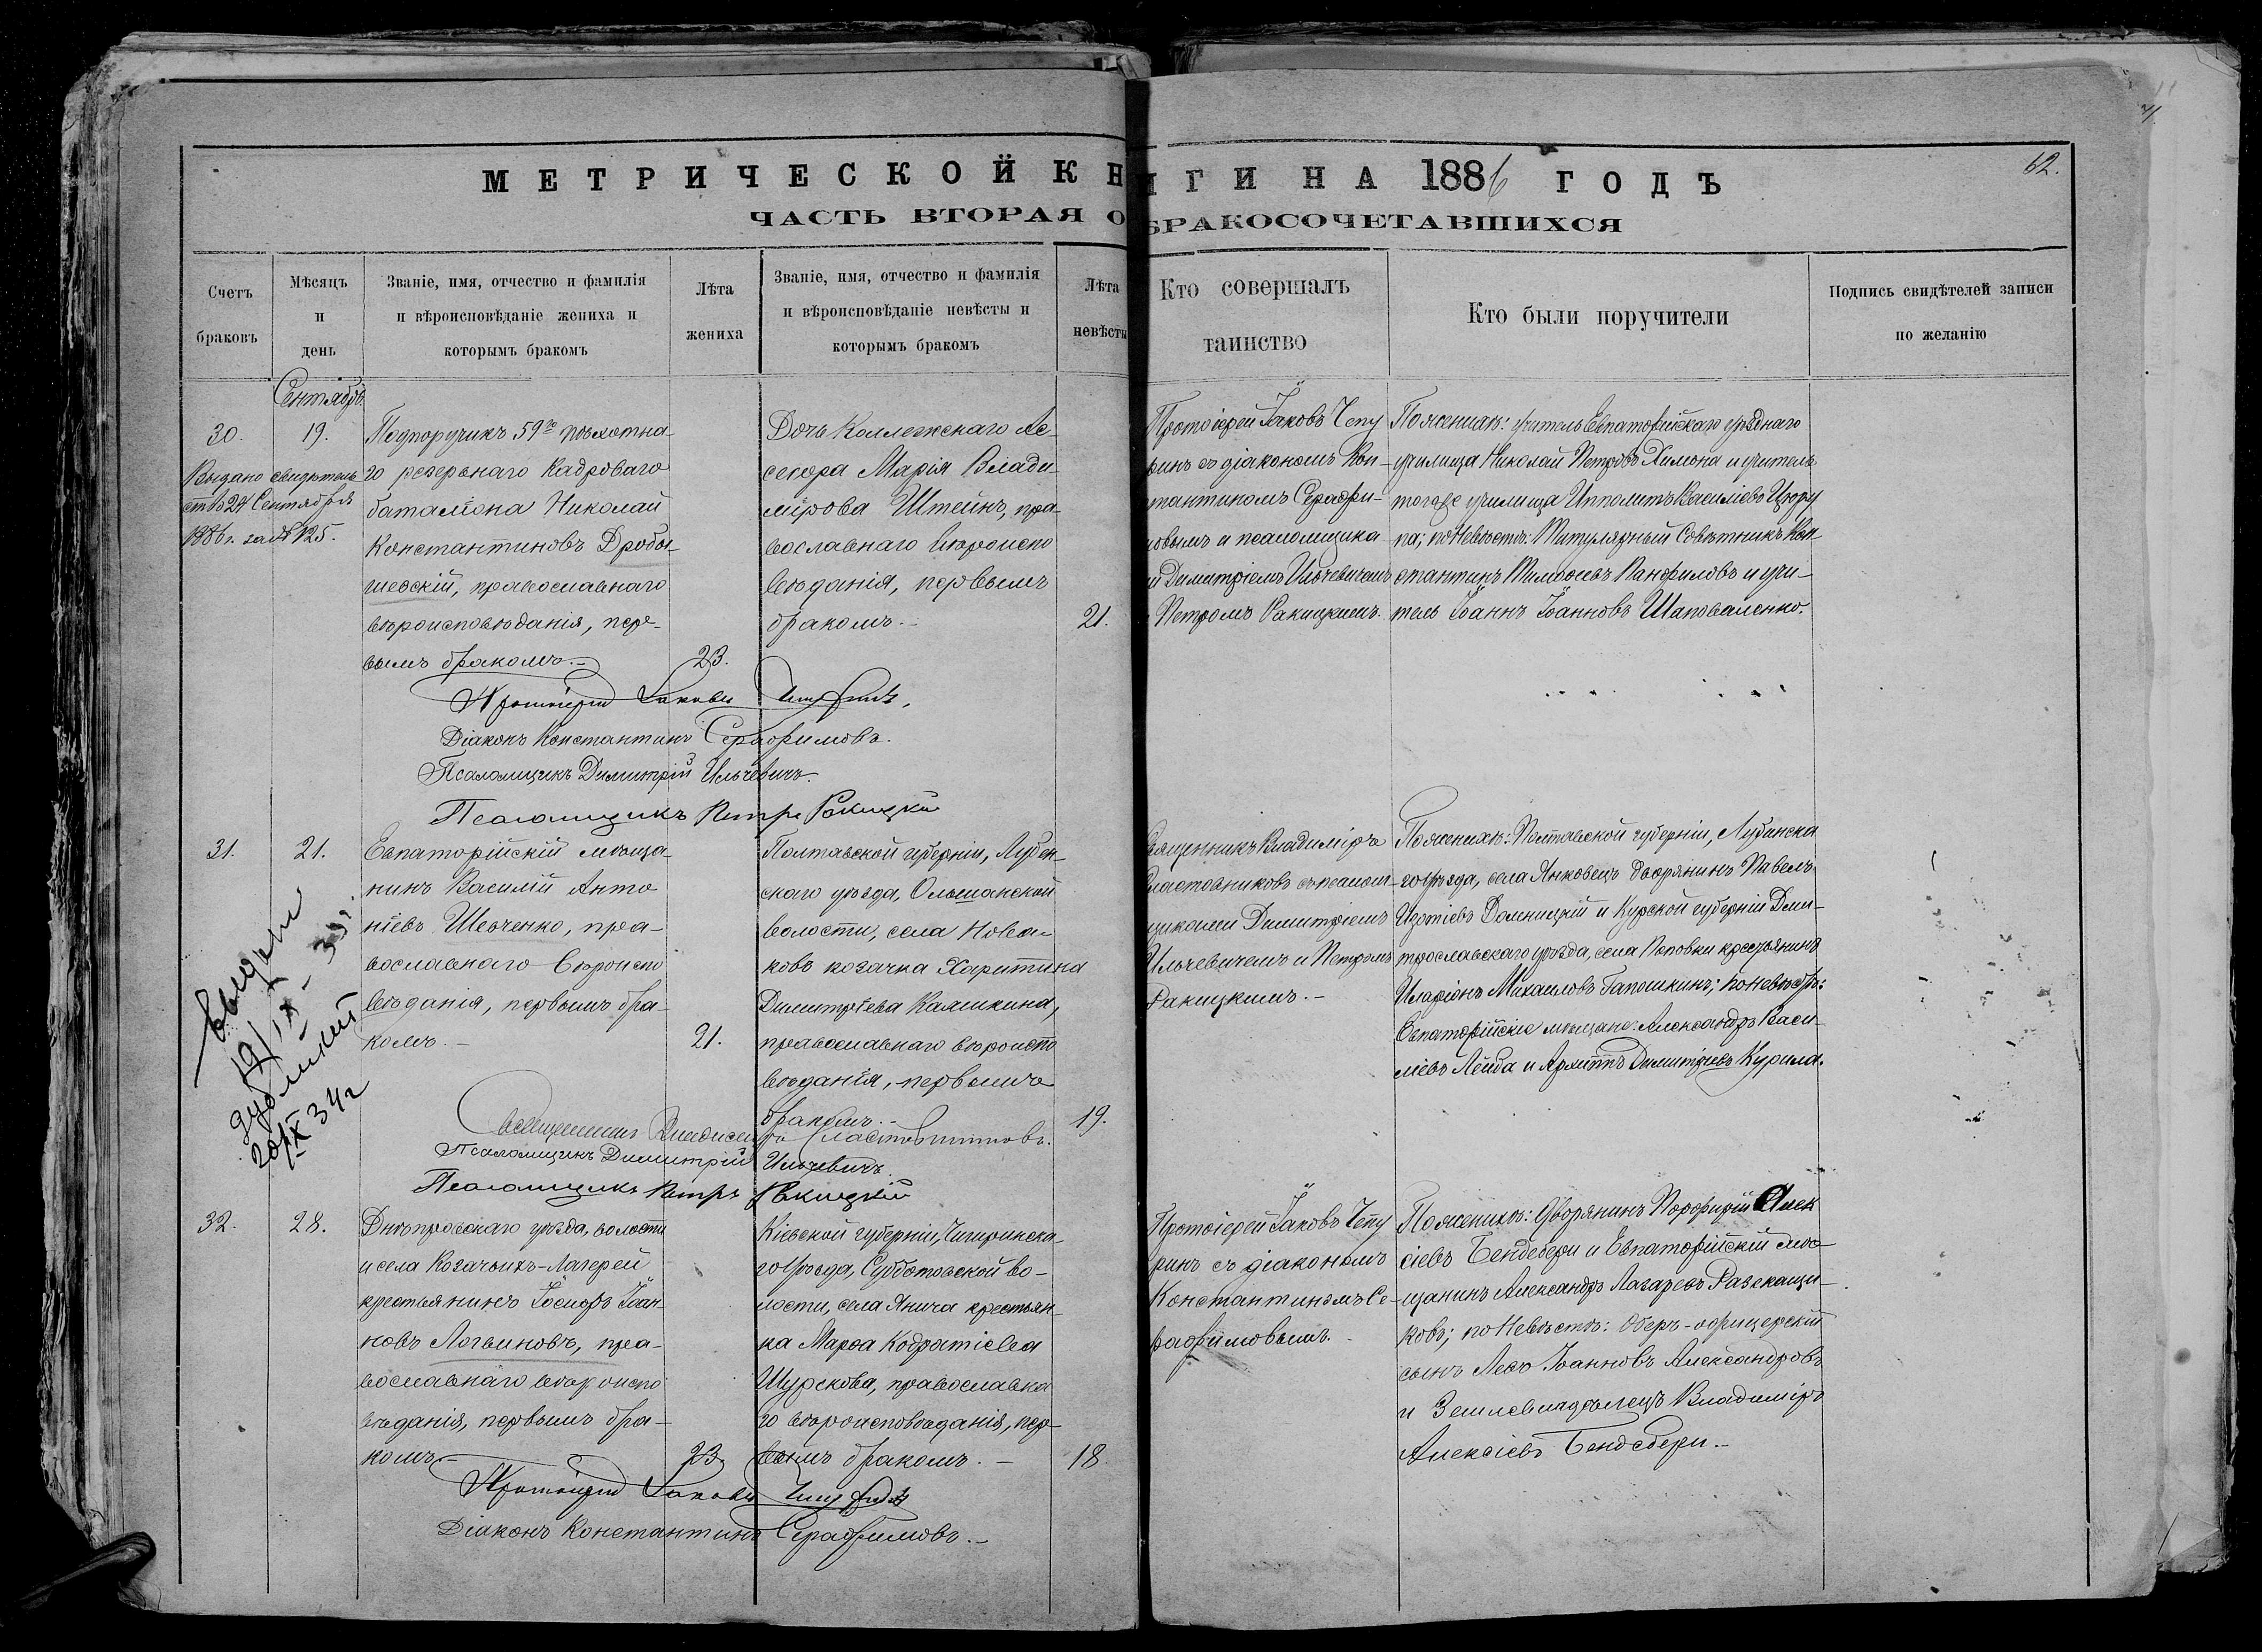 МЕТРИЧЕСКОЙ КНИГИ НА 1886 ГОДЪ
62.
ЧАСТЬ ВТОРАЯ О БРАКОСОЧЕТАВШИХСЯ
Счетъ
браковъ
Мѣсяцъ
и
день
Званіе, имя, отчество и фамилія
и вѣроисповѣданіе жениха и
которымъ бракомъ
Лѣта
жениха
Званіе, имя, отчество и фамилія
и вѣроисповѣданіе невѣсты и
которымъ бракомъ
Лѣта
невѣсты
Кто совершалъ
таинство
Кто были поручители
Подпись свидѣтелей записи
по желанію
Сентябрь.
30.
19.
Выдано свидѣтель
ство 24 Сентября
1886 г. за № 125.
Подпоручикъ 59го пѣхотна-
го резервнаго Кадроваго
баталіона Николай
Константиновъ Дробы-
шевскій, православнаго
вѣроисповѣданія, пер-
вымъ бракомъ.-
23.
Дочь Коллежскаго Ас-
сесора Марія Влади-
мірова Штейнъ, пра-
вославнаго вѣроиспо
вѣданія, первымъ
бракомъ.-
21.
Протоіерей Іаковъ Чепу
ринъ съ діакономъ Кон-
стантиномъ Серафи-
мовымъ и псаломщика-
ми Димитріемъ Ильчевичемъ
и Петромъ Ракицкимъ.
По жениху: учитель Евпаторійскаго уѣзднаго
училища Николай Петровъ Химона и учитель
тогоже училища Ипполитъ Василіевъ Цюру
па; по Невѣстѣ: Титулярный Совѣтникъ Кон
стантинъ Тимоѳеевъ Панфиловъ и учи-
тель Іоаннъ Іоанновъ Шаповаленко.
Протоіерей Іаковъ Чепуринъ.
Діаконъ Константинъ Серафимовъ.
Псаломщикъ Димитрій Ильчевичъ.
Псаломщикъ Петръ Ракицкій
31.
21.
19/IX-
20/IX 34 г
Евпаторійскій мѣща-
нинъ Василій Анто
ніевъ Шевченко, пра-
вославнаго вѣроиспо
вѣданія, первымъ бра-
комъ.-
21.
Полтавской губерніи, Лубен-
скаго уѣзда, Ольшанской
волости, села Нова-
ковъ козачка Харитина
Димитріева Калюжина,
православнаго вѣроиспо
вѣданія, первымъ
бракомъ.-
19.
Священникъ Владиміръ
Сластовниковъ съ псалом-
щиками Димитріемъ
Ильчевичемъ и Петромъ
Ракицкимъ.-
По жениху: Полтавской губерніи, Лубенска
го уѣзда, села Янковецъ дворянинъ Павелъ
Изотіевъ Домницкій и Курской губерніи Дми-
трославскаго уѣзда, села Поповки крестьянинъ
Иларіонъ Михаиловъ Гапошкинъ; по невѣстѣ:
Евпаторійскіе мѣщане: Александръ Васи-
ліевъ Лейба и Димитріевъ Курила.
Священникъ Владиміръ Сластовниковъ.
Псаломщикъ Димитрій Ильчевичъ
Псаломщикъ Петръ Ракицкій
32.
28.
Днѣпровскаго уѣзда, волости
и села Козачьихъ-Лагерей
крестьянинъ Іосифъ Іоан-
новъ Логвиновъ, пра-
вославнаго вѣроиспо
вѣданія, первымъ бра-
комъ.-
23.
Кіевской губерніи, Чигиринска-
го Уѣзда, Субботовской во-
лости, села Янича крестьян-
ка Марѳа Кодратіева
Шурскова, православна
го вѣроисповѣданія, пер-
вымъ бракомъ.-
18.
Протоіерей Іаковъ Чепу
ринъ съ діакономъ
Константиномъ Се-
рафимовымъ.-
По жениху: Дворянинъ Порфирій Алек
сіевъ Бендебери и Евпаторійскій мѣ-
щанинъ Александръ Лазаревъ Разскащи-
ковъ; по Невѣстѣ: Оберъ-офицерскій
сынъ Левъ Іоанновъ Александровъ
и Землевладѣлецъ Владиміръ
Алексіевъ Бендебери.-
Протоіерей Іаковъ Чепуринъ
Діаконъ Константинъ Серафимовъ.-